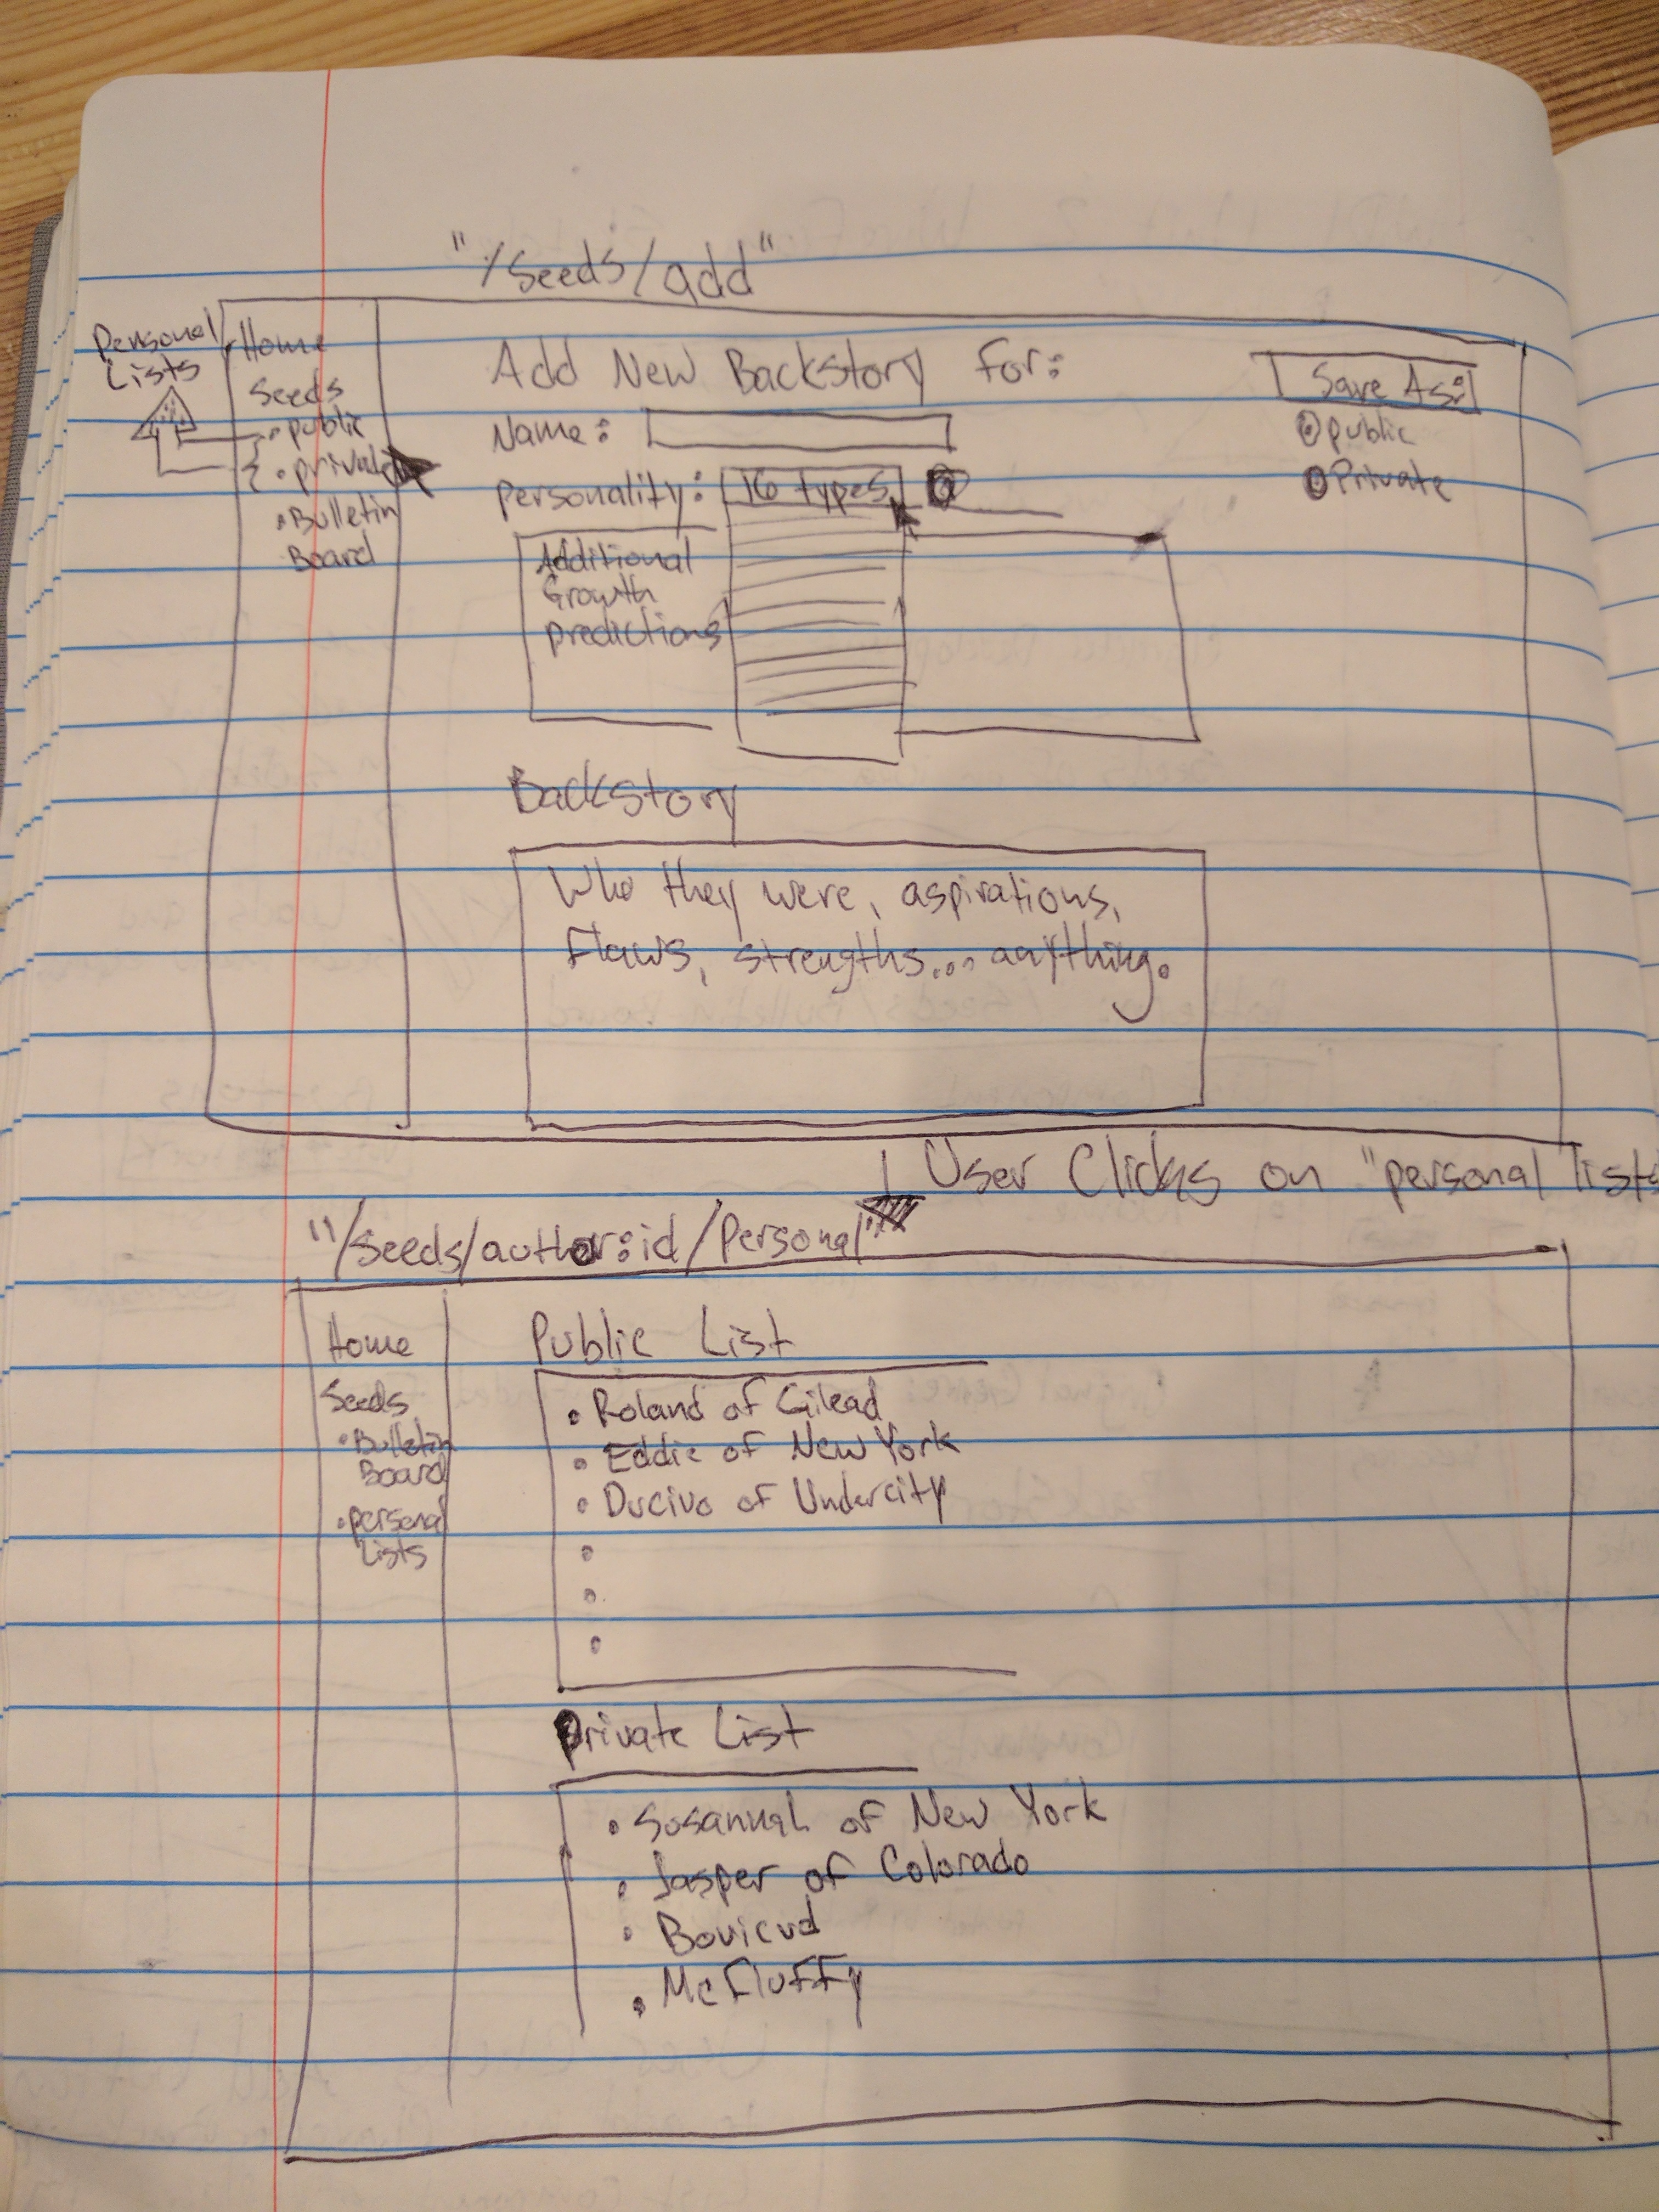 "/Seeds/add"
Personal
Lists
Home
Seeds
• public
• private
• Bulletin
Board
Add New Backstory For:
Name:
Personality: 16 types
Additional
Growth
predictions
Save As:
public
Private
Backstory
Who they were, aspirations,
Flaws, strengths... anything.
User Clicks on "personal lists
"/Seeds/author:id/Personal"
Home
Seeds
• Bulletin
Board
• personal
Lists
Public List
• Roland of Gilead
• Eddie of New York
• Ducivo of Undercity
•
•
•
Private List
• Susannah of New York
• Jasper of Colorado
•
• McFluffy